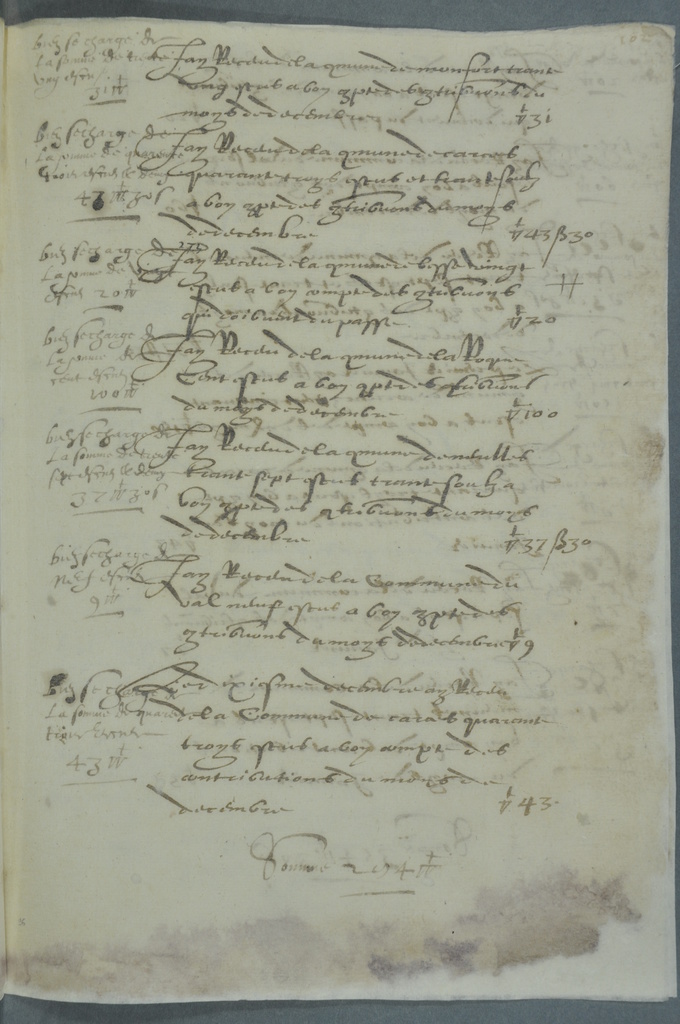 bien se charge de
la somme de trente
ung escus
31 ₶
Jay Receu de la commune de monfort trante
ung escus a boy conpte des contribuons du
moys de decembre
▽ 31
bien se charge de
la somme de quarente
trois escus & demy
43 ₶ 30 s
Jay Receu de la commune de carces
quarante troys escus et trante soulz
a boy conpte des contribuons du moys
de decembre
▽ 43 ß 30
bien se charge de
la somme de vingt
escus 20 ₶
Jay Receu de la commune de besse vingt
escus a boy compte des contribuons
qui doibuent du passe
▽ 20
bien se charge de
la somme de
cent escus
100 ₶
Jay Receu de la commune de la Roque
Cent escus a boy conpte des contribuons
du moys de decembre
▽ 100
bien se charge de
la somme de trente
sept escus & demy
37 ₶ 30 s
Jay Receu de la commune de meulles
trante sept escus trante soulz a
boy conpte des contribuons du moys
de decembre
▽ 37 ß 30
bien se charge de
neuf escus
9 ₶
Jay Receu de la Commune du
val neuf escus a boy conpte des
contribuons du moys de decembre ▽ 9
bien se charge de
la somme de quarente
trois escus
43 ₶
decembre ay Receu
de la Commune de carces quarante
troys escus a boy compte des
contributions du moys de
decembre
▽ 43
Somme 284 ₶